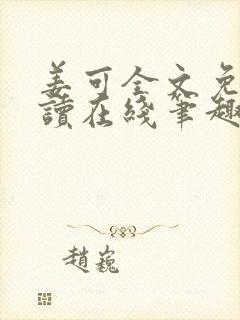 姜可全文免
讀在綫筆趣
趙巍